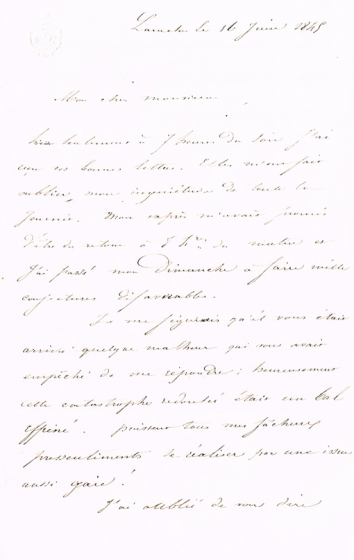 le 16 Juin 1845
Mon cher monsieur
hier seulement à 7 heures du soir j'ai
reçu vos bonnes lettres. Elles m'ont fait
oublier mon inquiétude de toute la
journée. Mon exprès m'avait promis
d'être de retour à 8 h.res du matin et
j'ai passé mon Dimanche à faire mille
conjectures défavorables.
Je me figurais qu'il vous était
arrivé quelque malheur qui vous avait
empêché de me répondre : heureusement
cette catastrophe redoutée était un bal
effréné. puissent tous mes fâcheux
pressentiments se réaliser par une issue
aussi gaie !
J'ai oublié de vous dire